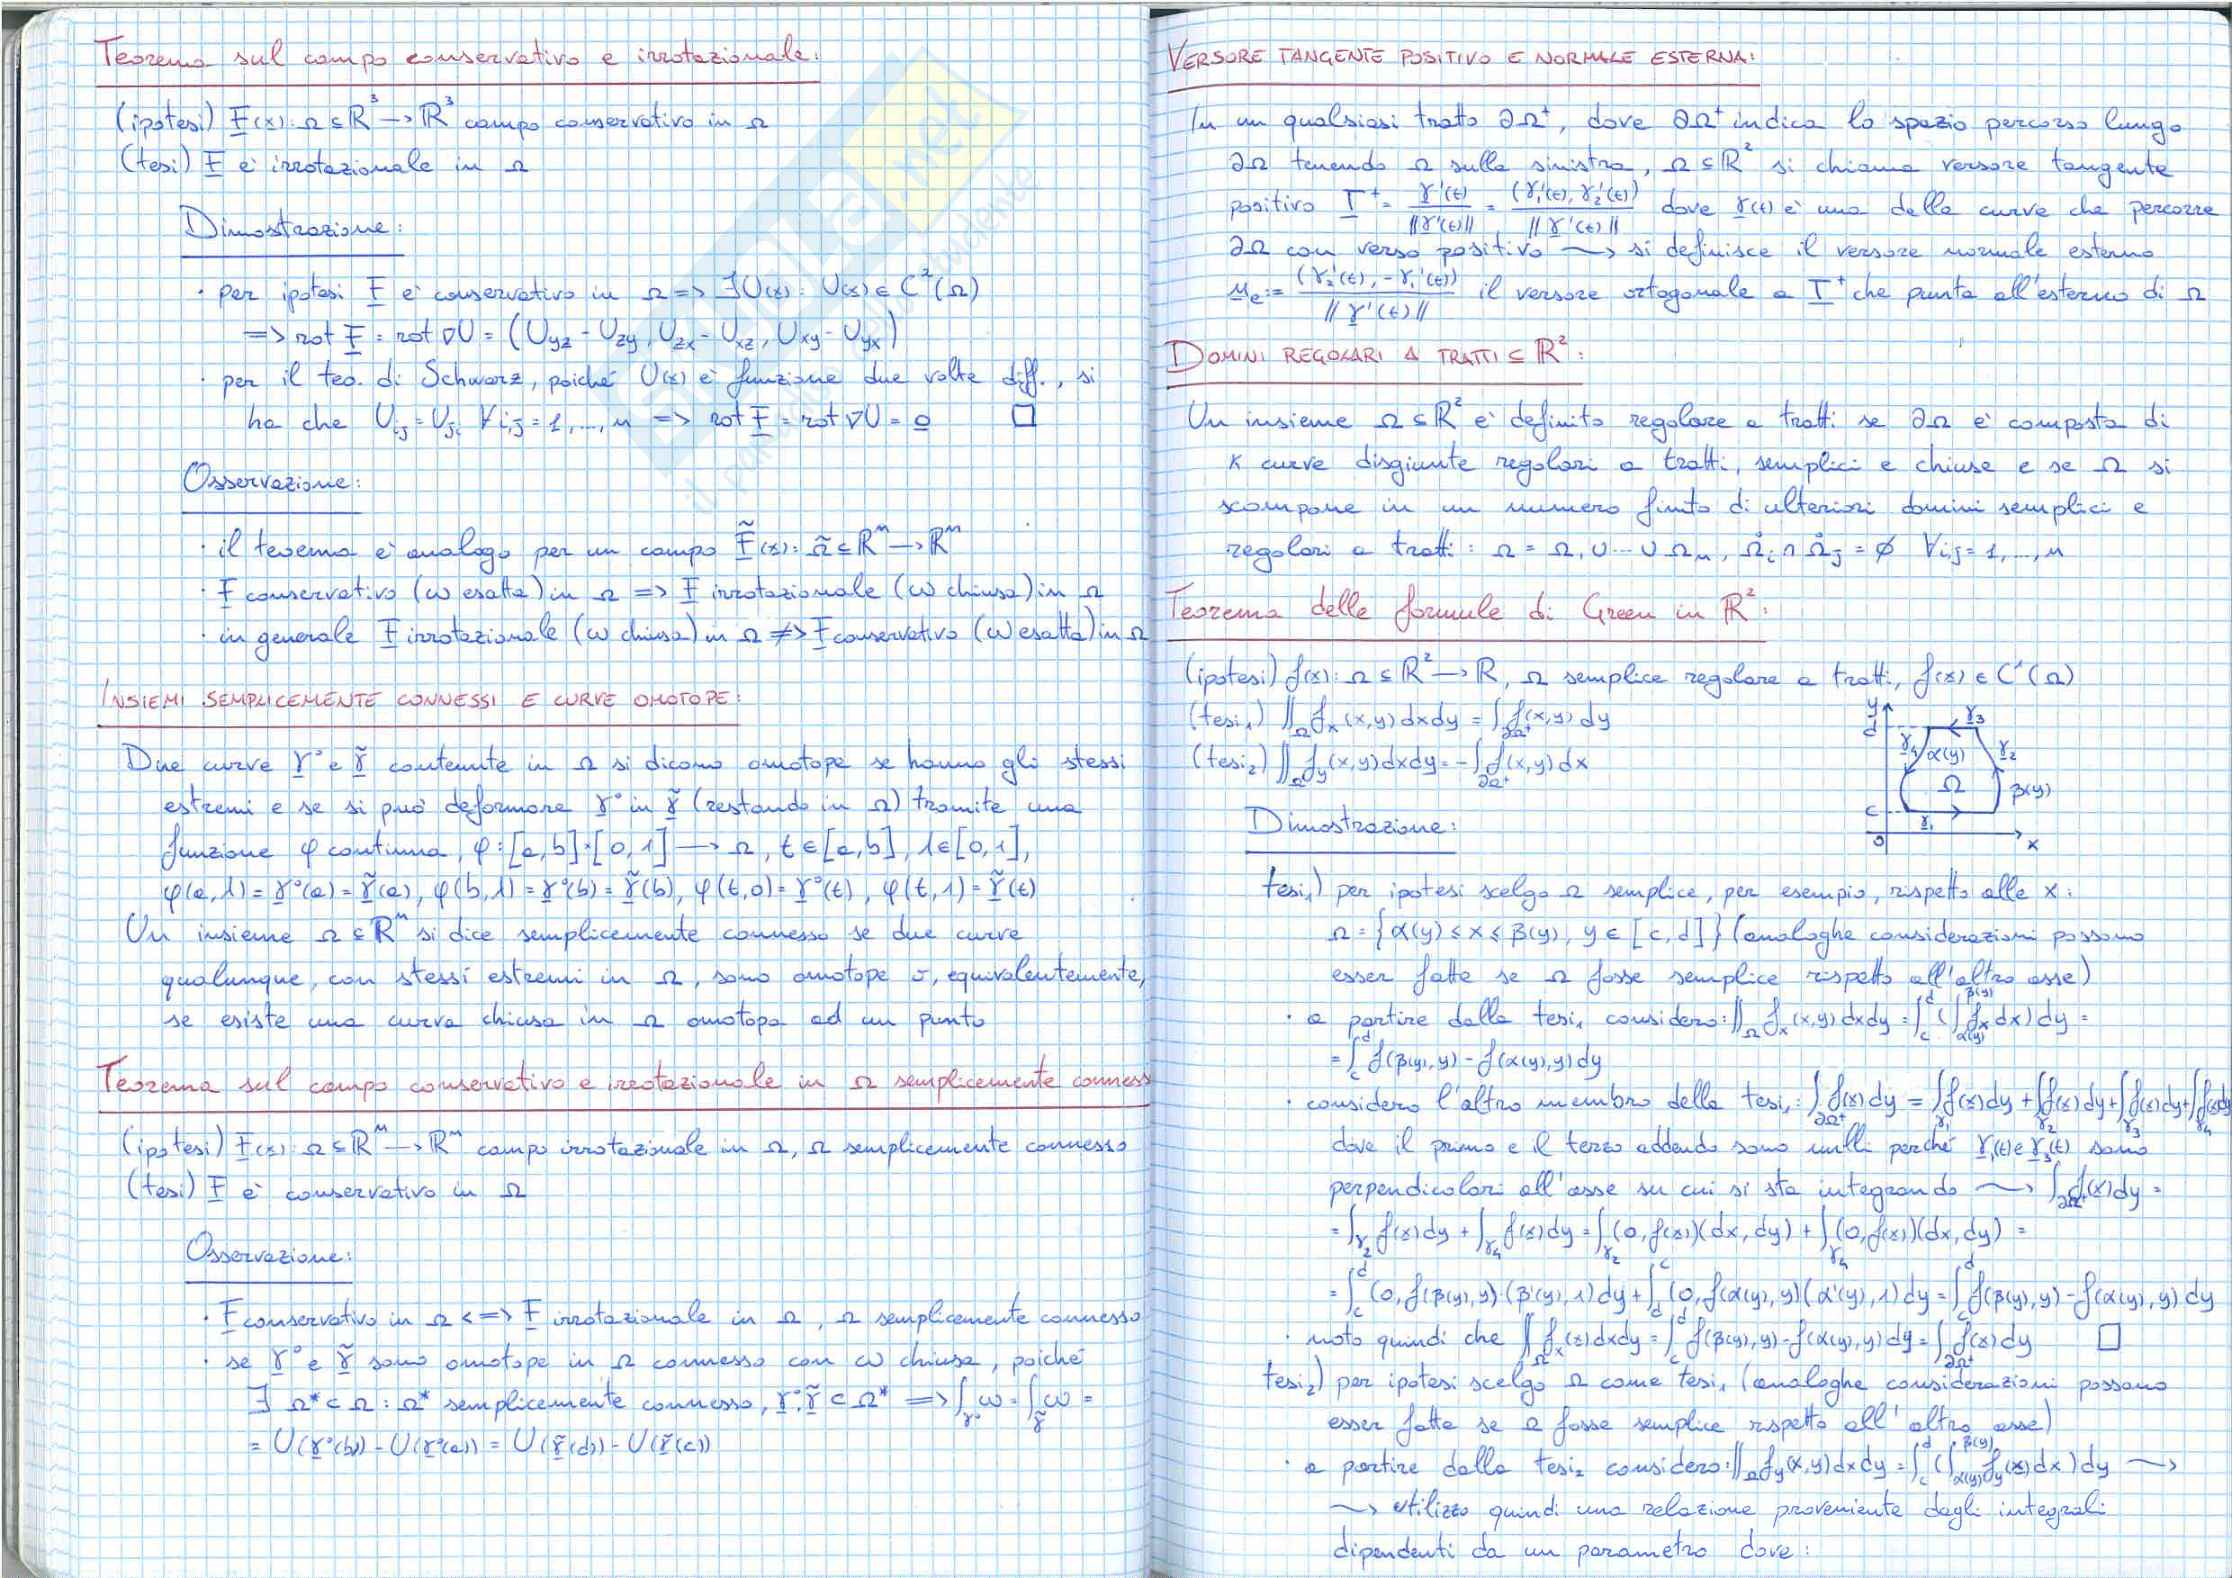 Teorema sul campo conservativo e irrotazionale:
(ipotesi) F(x): Ω⊆ℝ³ → ℝ³ campo conservativo in Ω
(tesi) F è irrotazionale in Ω
Dimostrazione:
· per ipotesi F è conservativo in Ω => ∃U(x): U(x) ∈ C²(Ω)
=> rot F = rot ∇U = (Uyz - Uzy, Uzx - Uxz, Uxy - Uyx)
· per il teo. di Schwarz, poiché U(x) è funzione due volte diff., si
ha che Uij = Uji ∀i,j = 1,...,n => rot F = rot ∇U = 0 □
Osservazione:
· il teorema è analogo per un campo F̃(x): Ω̃⊆ℝⁿ → ℝⁿ
· F conservativo (ω esatta) in Ω => F irrotazionale (ω chiusa) in Ω
· in generale F irrotazionale (ω chiusa) in Ω ≠> F conservativo (ω esatta) in Ω
INSIEMI SEMPLICEMENTE CONNESSI E CURVE OMOTOPE:
Due curve γ° e γ̃ contenute in Ω si dicono omotope se hanno gli stessi
estremi e se si può deformare γ° in γ̃ (restando in Ω) tramite una
funzione φ continua, φ: [a,b]×[0,1] → Ω, t∈[a,b], λ∈[0,1],
φ(a,λ) = γ°(a) = γ̃(a), φ(b,λ) = γ°(b) = γ̃(b), φ(t,0) = γ°(t), φ(t,1) = γ̃(t)
Un insieme Ω⊆ℝⁿ si dice semplicemente connesso se due curve
qualunque, con stessi estremi in Ω, sono omotope o, equivalentemente,
se esiste una curva chiusa in Ω omotopa ad un punto
Teorema sul campo conservativo e irrotazionale in Ω semplicemente conness
(ipotesi) F(x): Ω⊆ℝⁿ → ℝⁿ campo irrotazionale in Ω, Ω semplicemente connesso
(tesi) F è conservativo in Ω
Osservazione:
· F conservativo in Ω <=> F irrotazionale in Ω, Ω semplicemente connesso
· se γ° e γ̃ sono omotope in Ω connesso con ω chiusa, poiché
∃ Ω* ⊂ Ω: Ω* semplicemente connesso, γ°,γ̃ ⊂ Ω* => ∫γ° ω = ∫γ̃ ω =
= U(γ°(b)) - U(γ°(a)) = U(γ̃(d)) - U(γ̃(c))
VERSORE TANGENTE POSITIVO E NORMALE ESTERNA:
In un qualsiasi tratto ∂Ω⁺, dove ∂Ω⁺ indica lo spazio percorso lungo
∂Ω tenendo Ω sulla sinistra, Ω⊆ℝ² si chiama versore tangente
positivo T⁺ = γ'(t)/||γ'(t)|| = (γ₁'(t), γ₂'(t))/||γ'(t)|| dove γ(t) è una delle curve che percorre
∂Ω con verso positivo ⟿ si definisce il versore normale esterno
ne := (γ₂'(t), -γ₁'(t))/||γ'(t)|| il versore ortogonale a T⁺ che punta all'esterno di Ω
DOMINI REGOLARI A TRATTI ⊆ ℝ²:
Un insieme Ω⊆ℝ² è definito regolare a tratti se ∂Ω è composta di
K curve disgiunte regolari a tratti, semplici e chiuse e se Ω si
scompone in un numero finito di ulteriori domini semplici e
regolari a tratti: Ω = Ω₁ ∪ ... ∪ Ωn, Ω̊i ∩ Ω̊j = ∅ ∀i,j = 1,...,n
Teorema delle formule di Green in ℝ²:
(ipotesi) f(x): Ω⊆ℝ² → ℝ, Ω semplice regolare a tratti, f(x) ∈ C¹(Ω)
(tesi₁) ∬Ω fx(x,y)dxdy = ∫∂Ω⁺ f(x,y)dy
(tesi₂) ∬Ω fy(x,y)dxdy = -∫∂Ω⁺ f(x,y)dx
y d γ₃ γ₄ α(y) γ₂ Ω β(y) c γ₁ 0 x
Dimostrazione:
tesi₁) per ipotesi scelgo Ω semplice, per esempio, rispetto alle x:
Ω = {α(y) ≤ x ≤ β(y), y ∈ [c,d]} (analoghe considerazioni possono
esser fatte se Ω fosse semplice rispetto all'altro asse)
· a partire dalla tesi₁ considero: ∬Ω fx(x,y)dxdy = ∫c^d (∫α(y)^β(y) fx dx)dy =
= ∫c^d f(β(y),y) - f(α(y),y)dy
· considero l'altro membro della tesi₁: ∫∂Ω⁺ f(x)dy = ∫γ₁ f(x)dy + ∫γ₂ f(x)dy + ∫γ₃ f(x)dy + ∫γ₄ f(x)dy
dove il primo e il terzo addendo sono nulli perché γ₁(t) e γ₃(t) sono
perpendicolari all'asse su cui si sta integrando ⟿ ∫∂Ω⁺ f(x)dy =
= ∫γ₂ f(x)dy + ∫γ₄ f(x)dy = ∫γ₂ (0,f(x))(dx,dy) + ∫γ₄ (0,f(x))(dx,dy) =
= ∫c^d (0,f(β(y),y)·(β'(y),1)dy + ∫d^c (0,f(α(y),y)(α'(y),1)dy = ∫c^d f(β(y),y) - f(α(y),y)dy
· noto quindi che ∬Ω fx(x)dxdy = ∫c^d f(β(y),y) - f(α(y),y)dy = ∫∂Ω⁺ f(x)dy □
tesi₂) per ipotesi scelgo Ω come tesi₁ (analoghe considerazioni possono
esser fatte se Ω fosse semplice rispetto all'altro asse)
· a partire dalla tesi₂ considero: ∬Ω fy(x,y)dxdy = ∫c^d (∫α(y)^β(y) fy(x)dx)dy ⟿
⟿ utilizzo quindi una relazione proveniente dagli integrali
dipendenti da un parametro dove: